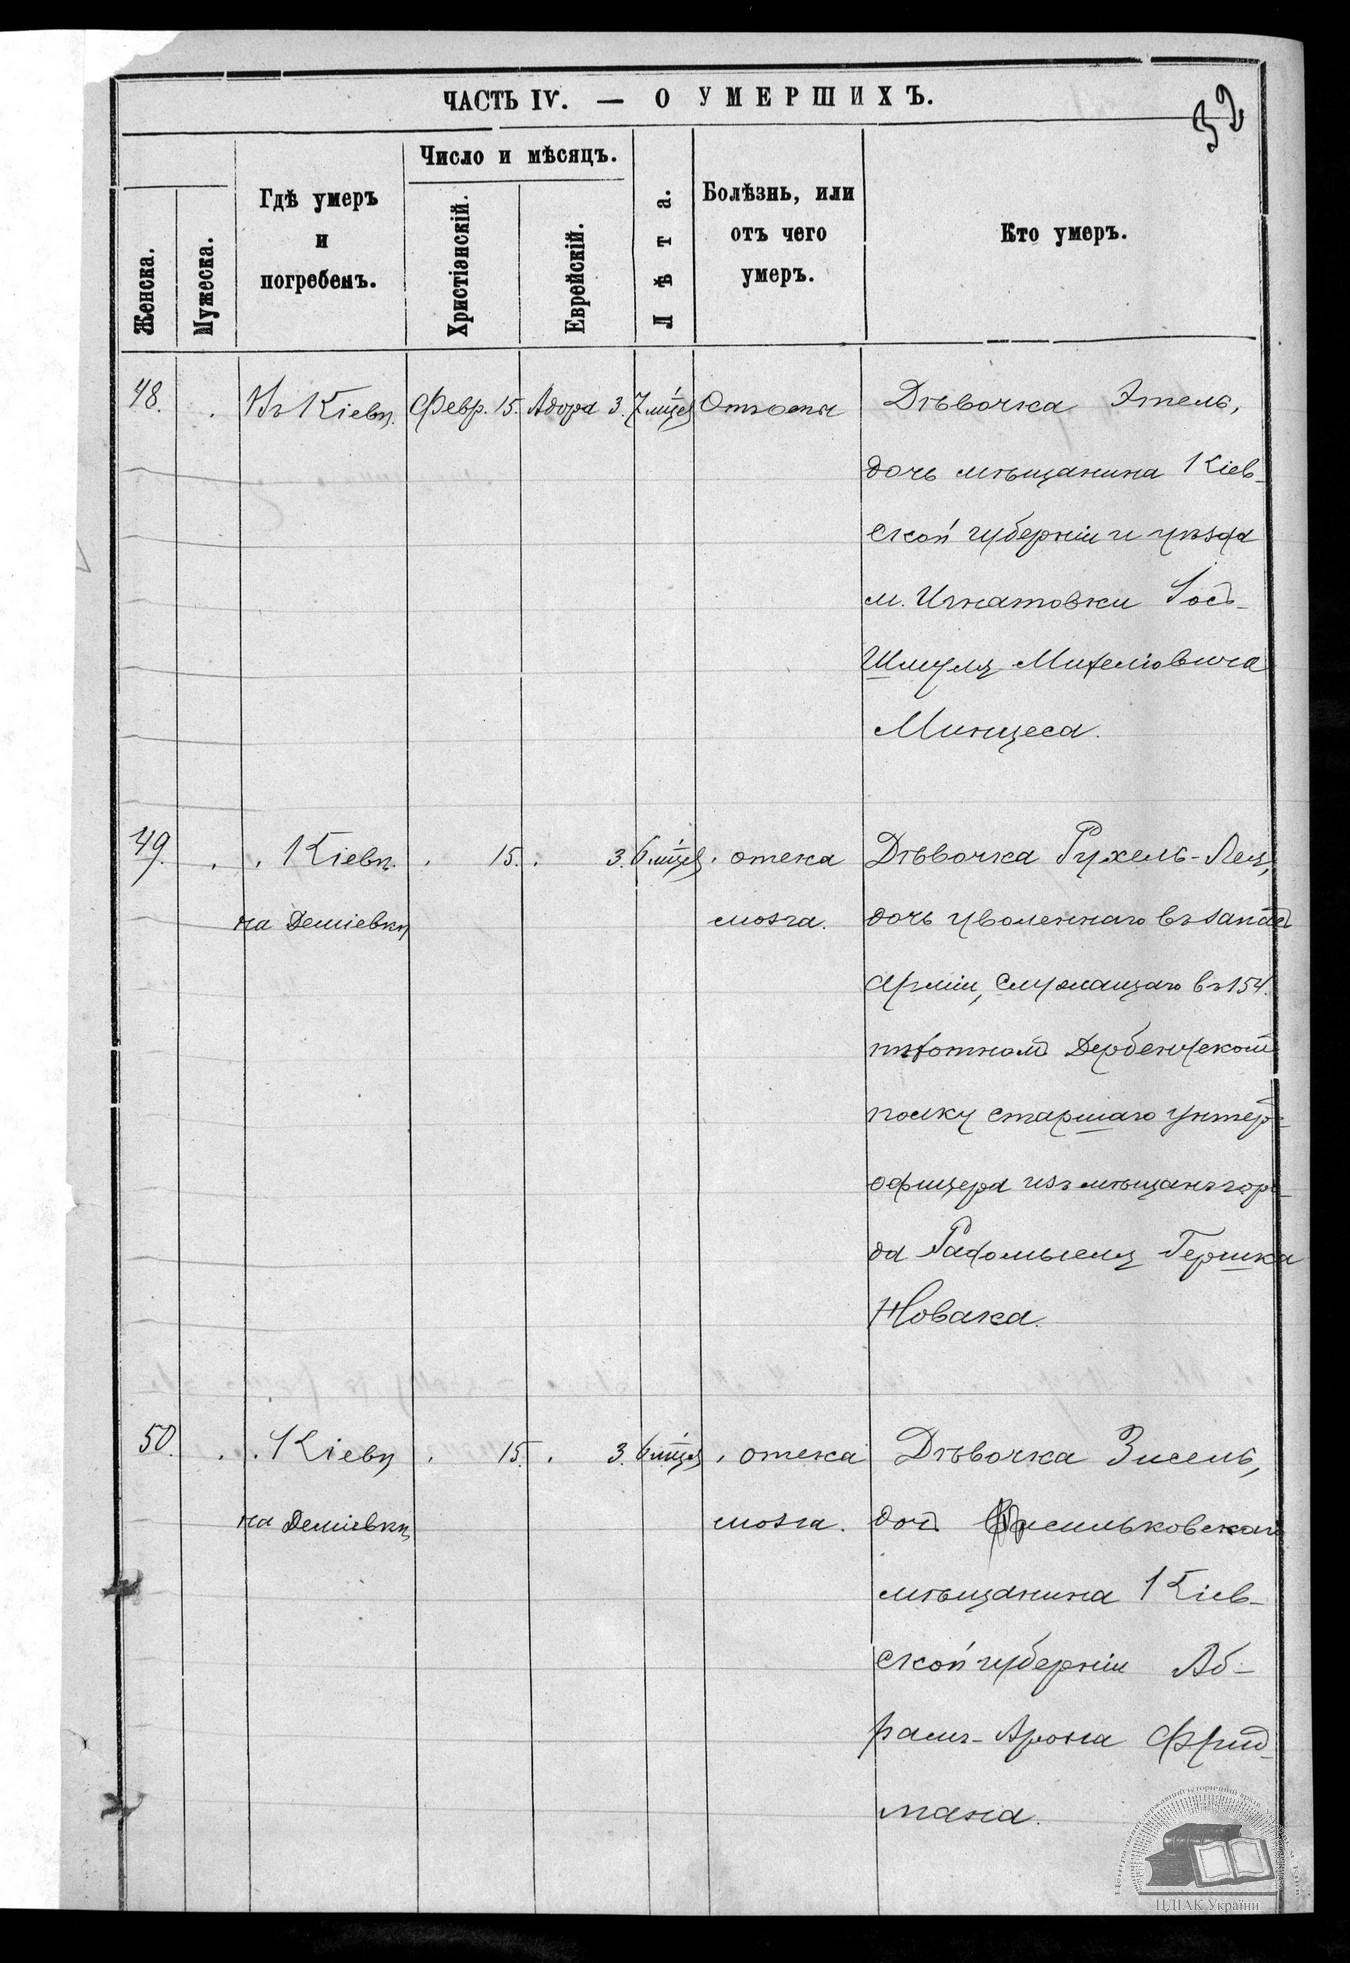 ЧАСТЬ IV. — О УМЕРШИХЪ.
32
Женска.
Мужеска.
Гдѣ умеръ
и
погребенъ.
Число и мѣсяцъ.
Христіанскій.
Еврейскій.
Лѣта.
Болѣзнь, или
отъ чего
умеръ.
Кто умеръ.
48. Въ Кіевѣ. Февр. 15. Адора 3. 7 мѣс. Отъ Дѣвочка Этель,
дочь мѣщанина Кіев-
ской губерніи и уѣзда
м. Игнатовки
Шмуля Михелiовича
Минцеса.
49. Кіевѣ. 15. 3. 6 мѣс. отека Дѣвочка Рухель-Лея,
на Деміевкѣ мозга. дочь уволеннаго въ запас
арміи, служащаго въ 154.
пѣхотномъ Дербентском
полку старшаго унтеръ-
офицера изъ мѣщанъ горо-
да Радомысля Гершка
Новака.
50. Кіевѣ 15. 3. 6 мѣс. отека Дѣвочка Зисель,
на Деміевкѣ мозга. доч Васильковскаго
мѣщанина Кіев-
ской губерніи Аб-
рамъ-Арона Фрид-
мана.
ЦДІАК України